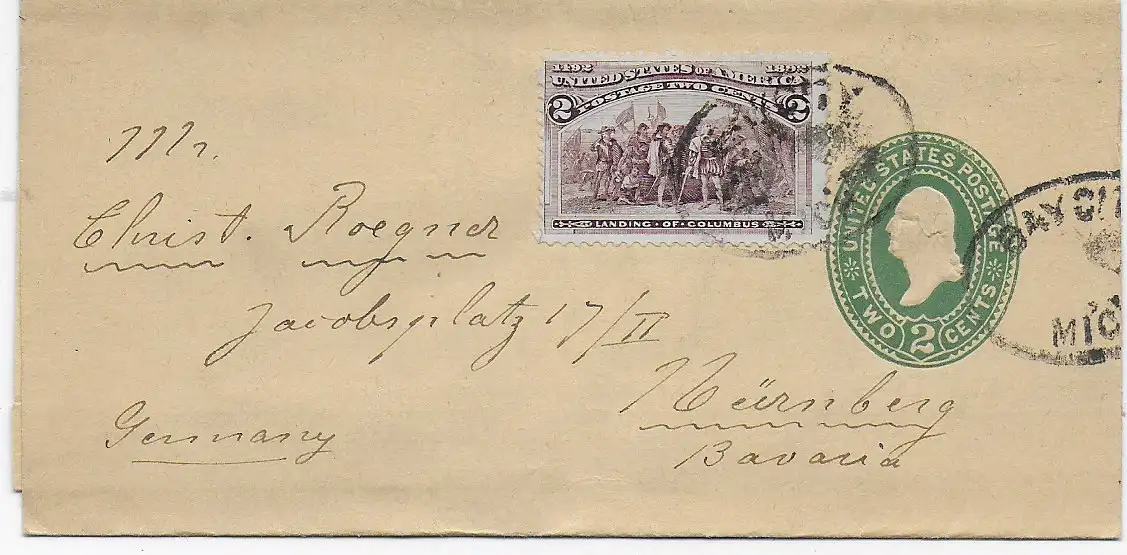 1492 1892
UNITED STATES OF AMERICA
POSTAGE TWO CENTS
2 2
LANDING · OF · COLUMBUS
MICH
UNITED STATES POSTAGE
TWO 2 CENTS
BAY CIT
MIC
Mr.
Christ. Roegner
Jacobsplatz 17/II
Nürnberg
Bavaria
Germany